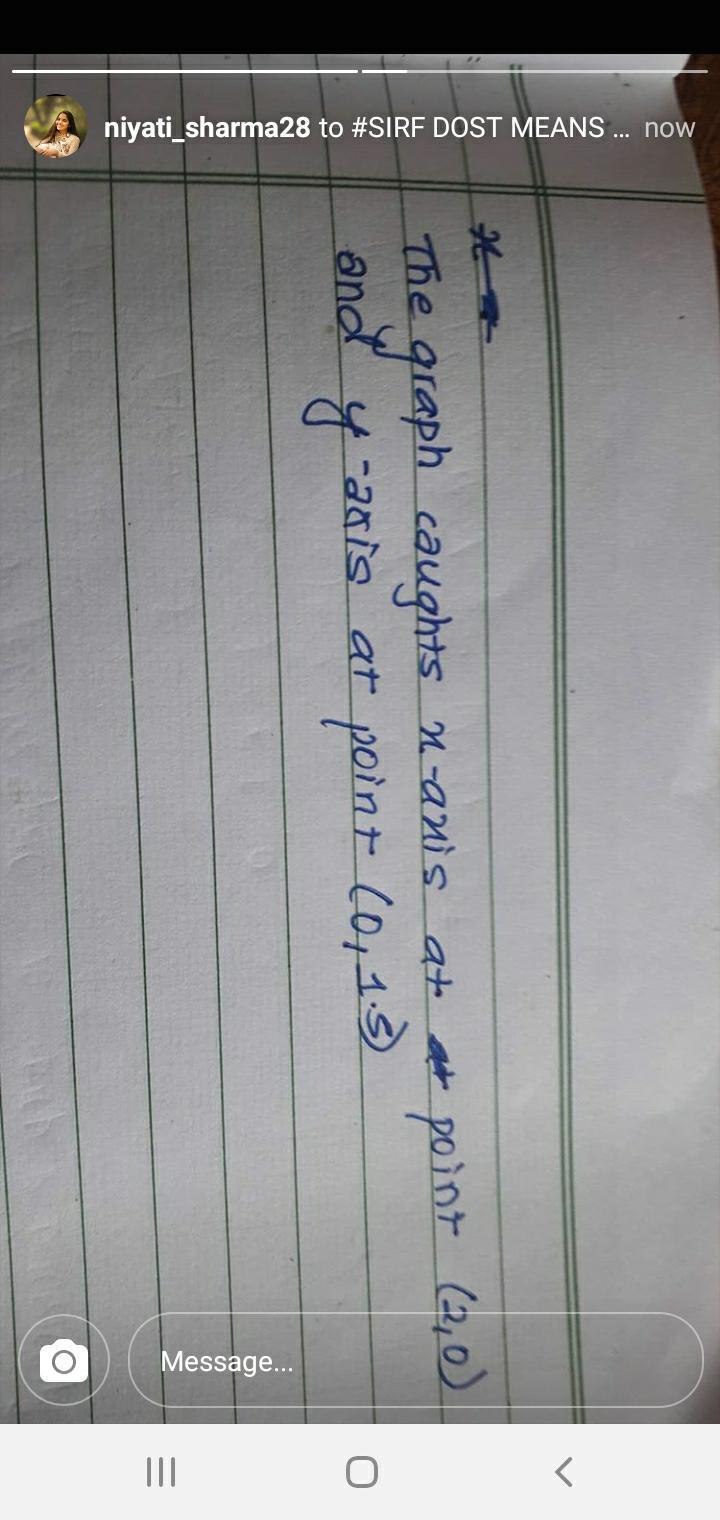 niyati_sharma28 to #SIRF DOST MEANS ... now
The graph caughts x-axis at point (2,0)
and y-axis at point (0, 1.5)
Message...